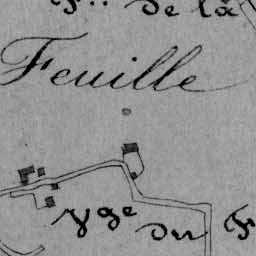 F.. de la
Feuille
yge
du F